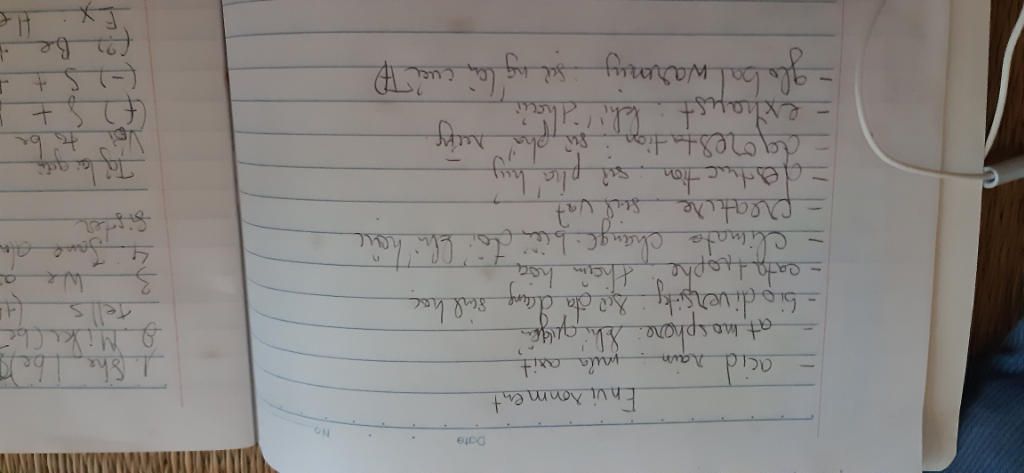 Date No
Environment
- acid rain : mưa axit
- atmosphere: khí quyển
- biodiversity: sự đa dạng sinh học
- catatrophe: thảm họa
- climate change: biến đổi khí hậu
- creature: sinh vật
- destruction: sự phá hủy
- deforestation: sự phá rừng
- exhaust: khí thải
- global warming: sự lên của TĐ
1. She (be)
2. Mike (be
Tells
3 We
4. Jane
sister
Tg lai gần
Với to be
(+) S +
(-) S +
(?) Be
Ex